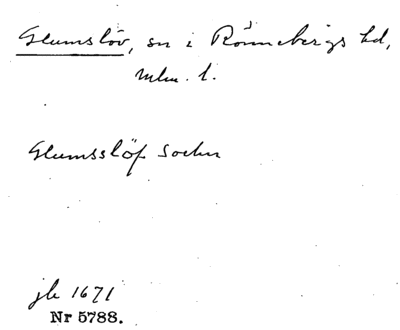 Glumslöv, sn i Rönnebergs hd,
Mlm. l.
Glumsslöf Sochn
jb 1671
Nr 5788.